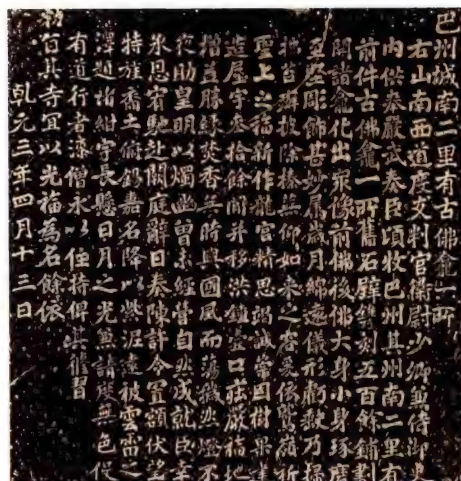 巴州城南二里有古佛龕一所
右山南西道度支判官衛尉少卿兼侍御史
内供奉嚴武奏臣頃牧巴州其州南二里有
前件古佛龕一所舊石壁鐫刻五百餘鋪劃
開諸龕化出衆像前佛後佛大身小身琢磨
至彫飾甚妙屬歲月綿遠儀形虧缺乃掃
拂苔蘚披除榛蕪仰如來之容爰依鷲嶺祈
聖上之福新作龍宮精思弼誠崇因樹果
造屋宇叁拾餘間并移洪鐘壹口莊嚴福地
增益勝緣焚香與時與國風而蕩穢然燈不
夜助皇明以燭幽曾未經營自然成就臣幸
承恩宥馳赴闕庭辭日奏陳許令置額伏望
特旌裔土俯錫嘉名降以紫泥遠被雲雷之
澤題諸紺宇長懸日月之光兼請度無色役
有道行者漆僧永以住持俾其脩習
勅旨其寺宜以光福為名餘依
乾元三年四月十三日